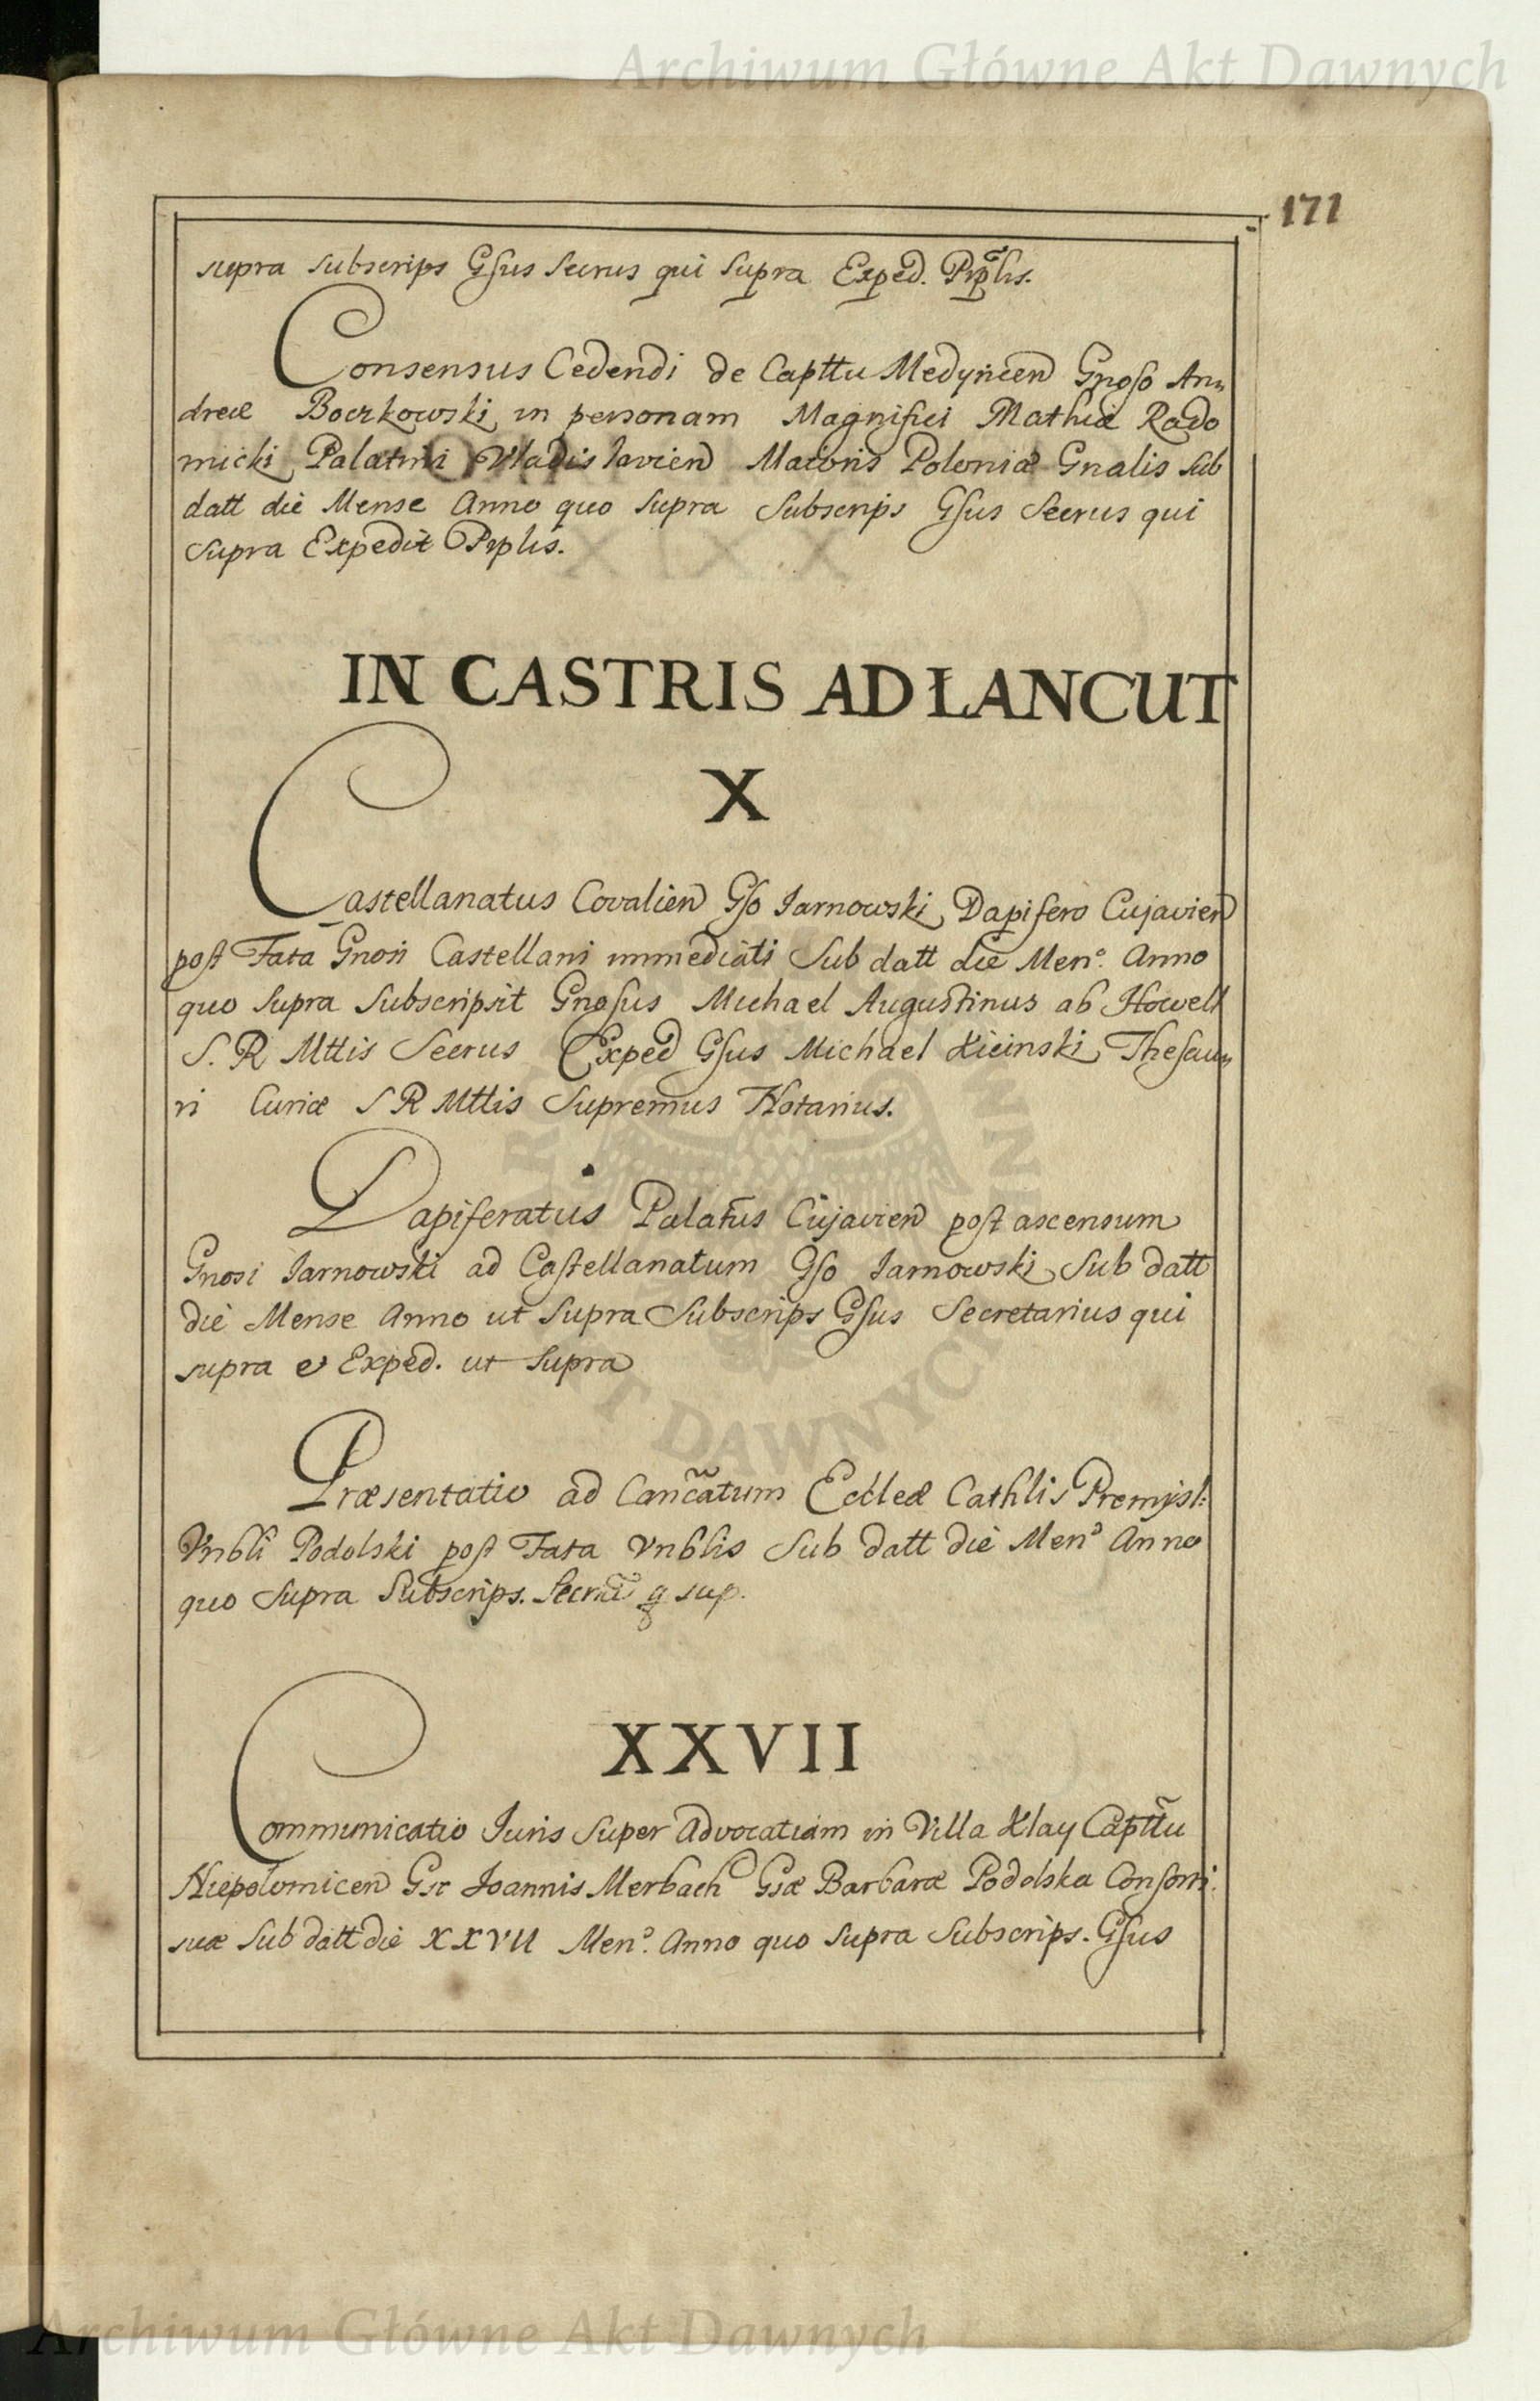 Archiwum Główne Akt Dawnych
171
supra subscrips Gsus Secrus qui supra Exped. Prplis.
Consensus Cedendi de Capttu Medyncen Gnoso An„
dreæ Boczkowski in personam Magnifici Mathiæ Rado
micki Palatini Vladislavien Maioris Poloniæ Gnalis sub
datt die Mense Anno quo supra Subscrips Gsus Secrus qui
supra Expedit Prplis.
IN CASTRIS AD ŁANCUT
X
Castellanatus Covalien Gso Iarnowski Dapifero Cujavien
post Fata Gnosi Castellani immediati Sub datt die Men° Anno
quo supra subscripsit Gnosus Michael Augustinus ab Howell
S. R Mttis Secrus Exped Gsus Michael Kicinski Thesau„
ri Curiæ S R Mttis Supremus Notarius.
Dapiferatus Palatus Cujavien post ascensum
Gnosi Iarnowski ad Castellanatum Gso Iarnowski Sub datt
die Mense Anno ut supra Subscrips Gsus Secretarius qui
supra et Exped. ut supra
Præsentatio ad Cancatum Eccleæ Cathlis Premysl:
Vnbli Podolski post Fata Vnblis Sub datt die Men° Anno
quo supra Subscrips. Secrus q sup.
XXVII
Communicatio Iuris super Advocatiam in Villa Klay Capttu
Niepolomicen Gsi Joannis Merbach Gsæ Barbaræ Podolska Consorti
suæ sub datt die XXVII Men° Anno quo supra Subscrips. Gsus
Archiwum Główne Akt Dawnych